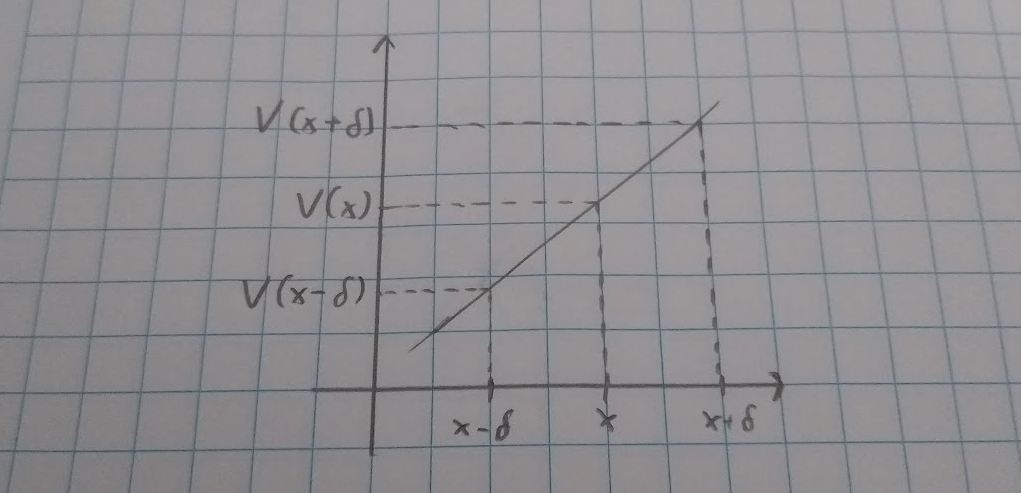 V(x+δ)
V(x)
V(x-δ)
x-δ x x+δ